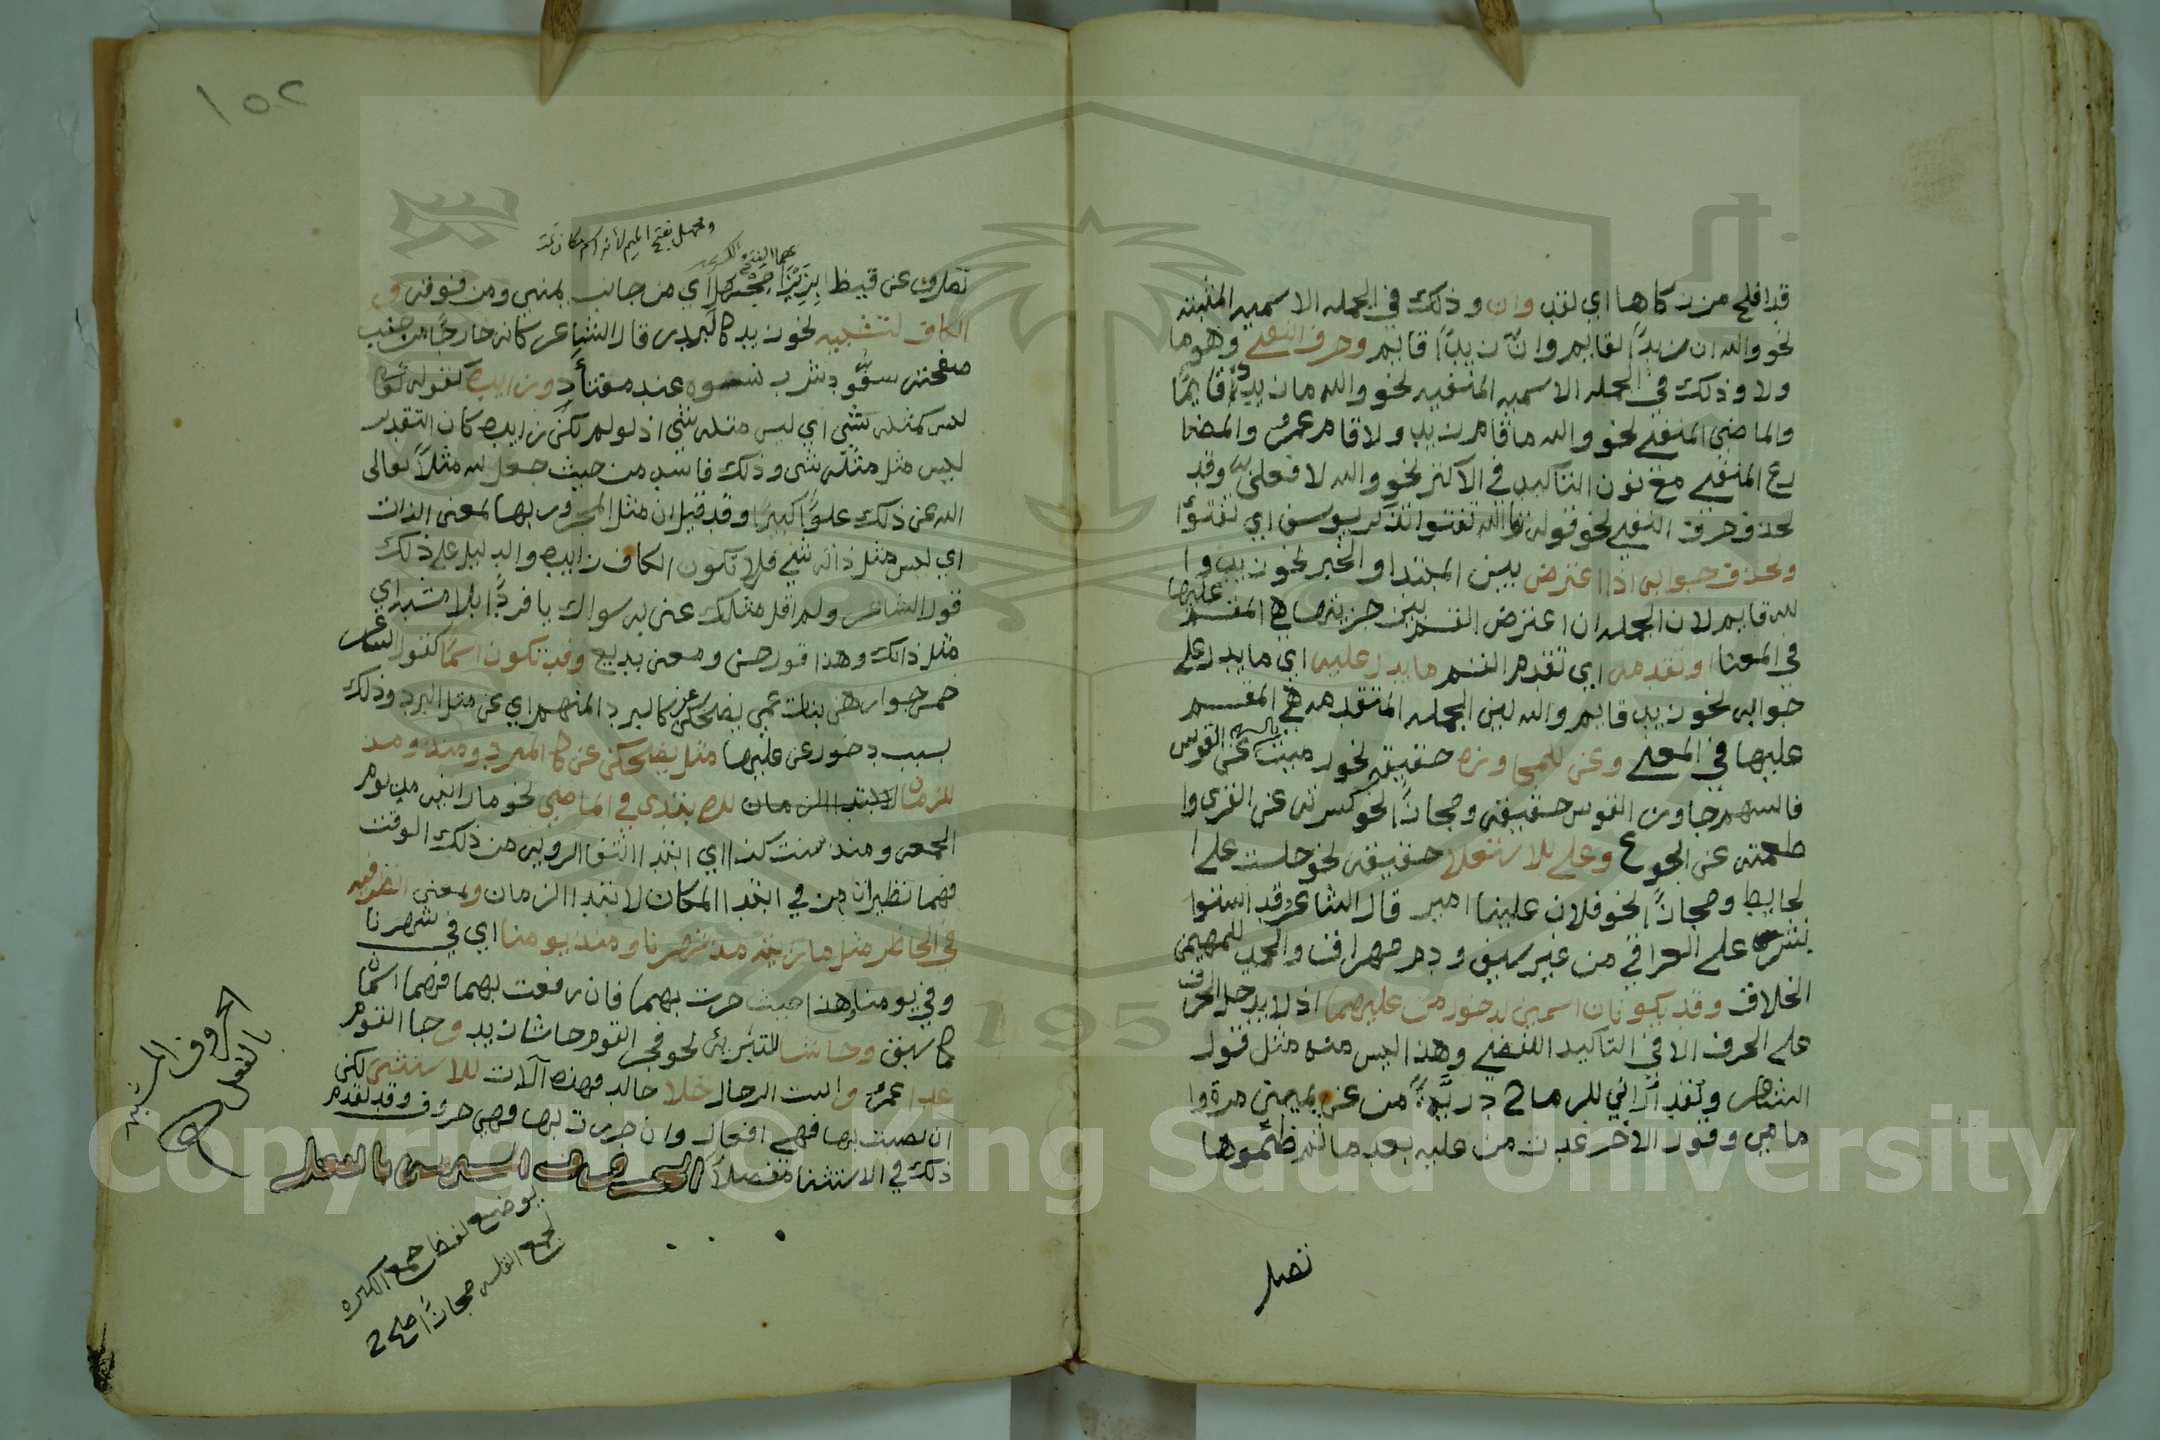 قد افلح من زكاها اي لقد وان وذلك في الجمله الاسميه المثبته
نحو والله ان زيدًا لقايم وانّ زيدًا قايم وحرف النفي وهو ما
ولا وذلك في الجمله الاسميه المنفيه نحو والله ما زيد قايمًا
والماضي المنفي نحو والله ما قام زيد ولا قام عمرو والمضا
رع المنفي مع نون التاكيد في الاكثر نحو والله لا فعلن وقد
يحذف حرف النفي نحو قوله تالله تفتوا تذكر يوسف اي لا تفتؤا
ويحذف جوابه اذا اعترض بين المبتدا والخبر نحو زيد وا
لله قايم لان الجمله ان اعترض القسم بين جزئيها هي المقسم عليها
في المعنا او تقدمه اي تقدم القسم ما يدل عليه اي ما يدل على
جوابه نحو زيد قايم والله لين الجمله المتقدمه هي المقسم
عليها في المعنى وعن للمجاوزه حقيقة نحو رميت بالسهم عن القوس
فالسهم جاوز القوس حقيقه ومجازًا نحو كسوته عن العري وا
طعمته عن الجوع وعلى للاستعلا حقيقه نحو جلست على ا
لحايط ومجازًا نحو فلان علينا امير قال الشاعر قد استوا
بشر على العراق من غير سيف ودم مهراق والحمد للمهيمن
الخلاق وقد يكونان اسمين لدخول من عليهما اذ لا يدخل الحرف
على الحرف الا في التاكيد اللفضي وهذا ليس منه مثل قول
الشاعر ولقد أراني للرماح دريّةً من عن يميني مرة وا
مامي وقول الاخر غدت من عليه بعد ما تم ظمؤها
تصل
١٥٢
ومجهل بفتح الميم لأنه اسم مكان
تصل وعن قيظ بزيزا مجهل اي من جانب يميني ومن فوقه و
الكاف لتشبيه نحو زيد كالبدر قال الشاعر كانه خارجًا من جنب
صفحته سفّود شرب نسوه عند مفتأد وزايده كقوله تعالى
ليس كمثله شي اي ليس مثله شي اذ لو لم تكن زايده كان التقدير
ليس مثل مثله شي وذلك فاسد من حيث جعل لله مثلاً تعالى
الله عن ذلك علوًا كبيرًا وقد قيل ان مثل المجرور بها بمعنى الذات
اي ليس مثل ذاته شي فلا تكون الكاف زايده والدليل على ذلك
قول الشاعر ولم اقل مثلك عني به سواك يا فردًا بلا مشبه اي
مثل ذاتك وهذا قول حسن ومعنى بديع وقد تكون اسمًا كقول الشاعر
يضحكن عن كالبرد المنهم اي عن مثل البرد وذلك
بسبب دخول عن عليها مثل يضحكن عن كالبرد ومنذ ومذ
للزمان لابتدا الزمان للابتدى في الماضي نحو ما رايته مذ يوم
الجمعه ومنذ سنت كذا اي ابتدا انتفا الرويه من ذلك الوقت
فهما نظيرتا من في ابتدا المكان لابتدا الزمان وبمعنى الضرفيه
في الحاظر مثل ما رايته مذ شهرنا ومنذ يومنا اي في شهرنا
وفي يومنا وهذا حيث جرت بهما فان رفعت بهما فهما اسمان
كما سبق وحاشا للتنزيه نحو فجر القوم حاشا زيد وجا القوم
عدا عمرو وانت الرجال خلا خالد فهذه آلات للاستثنى لكن
ان نصبت بها فهي افعال وان جرت بها فهي حروف وقد تقدم
ذلك في الاستثنا مفصلاً الحروف المشبهه بالفعل
الحروف المشبهه
بالفعل
يوضع لفظ جمع الكثره
لجمع القله مجازًا صح
Copyright © King Saud University
195